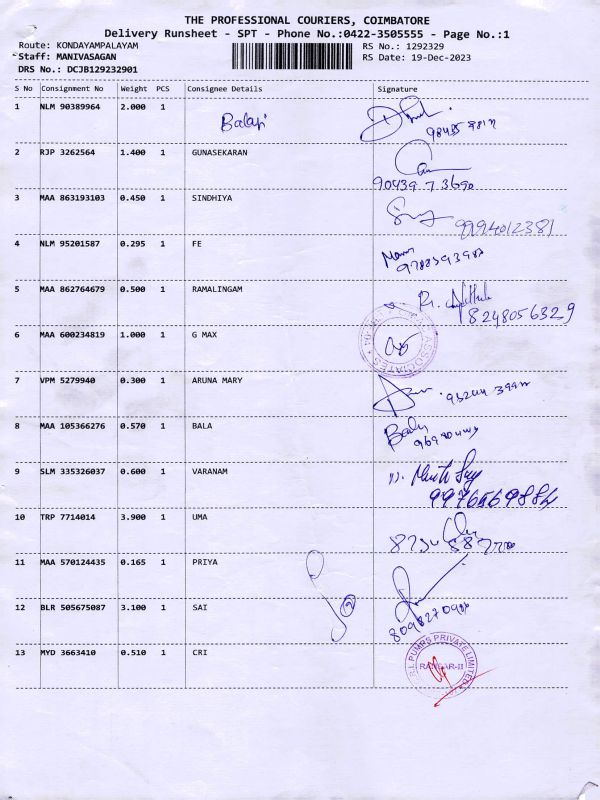 THE PROFESSIONAL COURIERS, COIMBATORE
Delivery Runsheet - SPT - Phone No.:0422-3505555 - Page No.:1
Route: KONDAYAMPALAYAM RS No.: 1292329
Staff: MANIVASAGAN RS Date: 19-Dec-2023
DRS No.: DCJB129232901
S No Consignment No Weight PCS Consignee Details Signature
1 NLM 90389964 2.000 1 Balaji
2 RJP 3262564 1.400 1 GUNASEKARAN
90439 7 3690
3 MAA 863193103 0.450 1 SINDHIYA
9994012381
4 NLM 95201587 0.295 1 FE
5 MAA 862764679 0.500 1 RAMALINGAM
8248056329
6 MAA 600234819 1.000 1 G MAX
ASSOCIATES
7 VPM 5279940 0.300 1 ARUNA MARY
8 MAA 105366276 0.570 1 BALA
Bala
9 SLM 335326037 0.600 1 VARANAM
10 TRP 7714014 3.900 1 UMA
11 MAA 570124435 0.165 1 PRIYA
12 BLR 505675087 3.100 1 SAI
2
13 MYD 3663410 0.510 1 CRI
PUMPS PRIVATE LIMITED